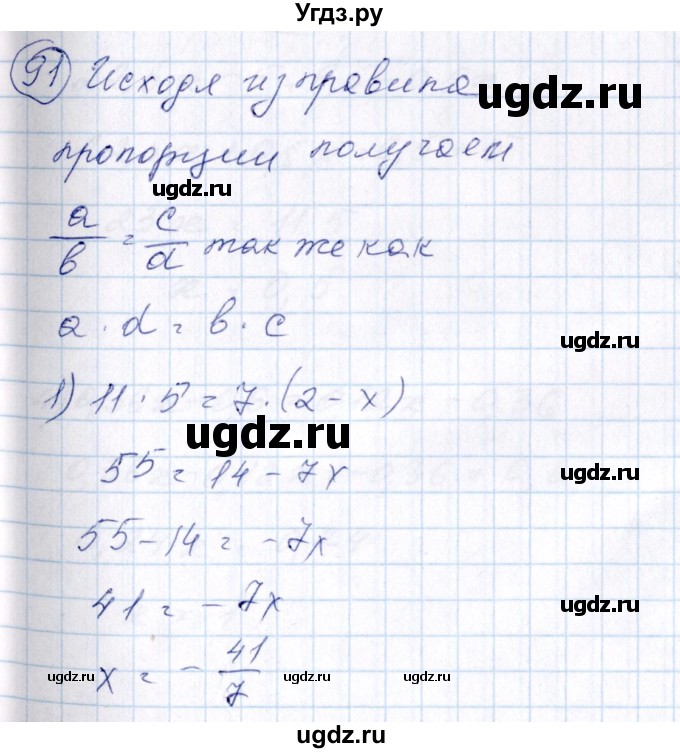 Угдз.ру
91 Исходя из правила
ugdz.ru
пропорции получаем
ugdz.ru
a/b = c/d так же как
ugdz.ru
a · d = b · c
ugdz.ru
1) 11 · 5 = 7 · (2 - x)
ugdz.ru
55 = 14 - 7x
ugdz.ru
55 - 14 = -7x
41 = -7x
ugdz.ru
x = - 41/7
ugdz.ru ugdz.ru ugdz.ru
ugdz.ru